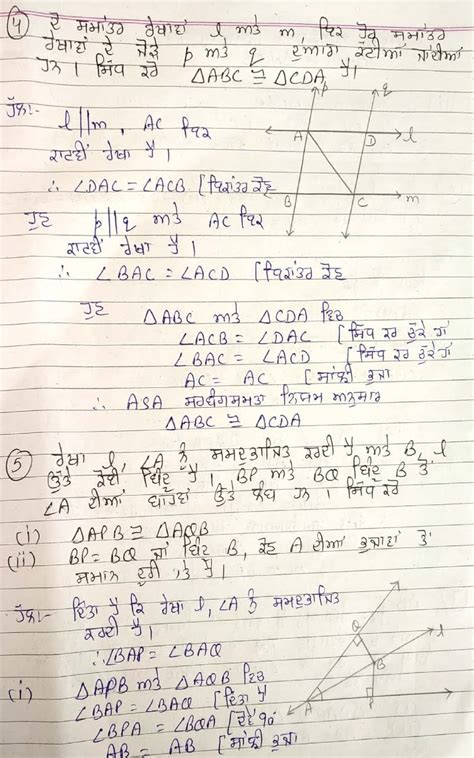 ④ ਦੋ ਸਮਾਂਤਰ ਰੇਖਾਵਾਂ l ਅਤੇ m, ਇੱਕ ਹੋਰ ਸਮਾਂਤਰ
ਰੇਖਾਵਾਂ ਦੇ ਜੋੜੇ p ਅਤੇ q ਦੁਆਰਾ ਕੱਟੀਆਂ ਜਾਂਦੀਆਂ
ਹਨ । ਸਿੱਧ ਕਰੋ ΔABC ≅ ΔCDA ਹੈ।
ਹੱਲ:-
l||m, AC ਇੱਕ
ਕਾਟਵੀਂ ਰੇਖਾ ਹੈ ।
∴ ∠DAC = ∠ACB [ਇਕਾਂਤਰ ਕੋਣ
ਹੁਣ p||q ਅਤੇ AC ਇੱਕ
ਕਾਟਵੀਂ ਰੇਖਾ ਹੈ ।
∴ ∠BAC = ∠ACD [ਇਕਾਂਤਰ ਕੋਣ
p q
A D l
B C m
ਹੁਣ ΔABC ਅਤੇ ΔCDA ਵਿੱਚ
∠ACB = ∠DAC [ਸਿੱਧ ਕਰ ਚੁੱਕੇ ਹਾਂ
∠BAC = ∠ACD [ਸਿੱਧ ਕਰ ਚੁੱਕੇ ਹਾਂ
AC = AC [ਸਾਂਝੀ ਭੁਜਾ
∴ ASA ਸਰਬੰਗਸਮਤਾ ਨਿਯਮ ਅਨੁਸਾਰ
ΔABC ≅ ΔCDA
⑤ ਰੇਖਾ l, ∠A ਨੂੰ ਸਮਦੁਭਾਜਿਤ ਕਰਦੀ ਹੈ ਅਤੇ B, l
ਉੱਤੇ ਕੋਈ ਬਿੰਦੂ ਹੈ । BP ਅਤੇ BQ ਬਿੰਦੂ B ਤੋਂ
∠A ਦੀਆਂ ਬਾਹਾਂ ਉੱਤੇ ਲੰਬ ਹਨ । ਸਿੱਧ ਕਰੋ
(i) ΔAPB ≅ ΔAQB
(ii) BP = BQ ਜਾਂ ਬਿੰਦੂ B, ਕੋਣ A ਦੀਆਂ ਭੁਜਾਵਾਂ ਤੋਂ
ਸਮਾਨ ਦੂਰੀ 'ਤੇ ਹੈ ।
ਹੱਲ:- ਦਿੱਤਾ ਹੈ ਕਿ ਰੇਖਾ l, ∠A ਨੂੰ ਸਮਦੁਭਾਜਿਤ
ਕਰਦੀ ਹੈ ।
∴ ∠BAP = ∠BAQ
(i) ΔAPB ਅਤੇ ΔAQB ਵਿੱਚ
∠BAP = ∠BAQ [ਦਿੱਤਾ ਹੈ
∠BPA = ∠BQA [ਦੋਵੇਂ 90°
AB = AB [ਸਾਂਝੀ ਭੁਜਾ
Q l
B
A P